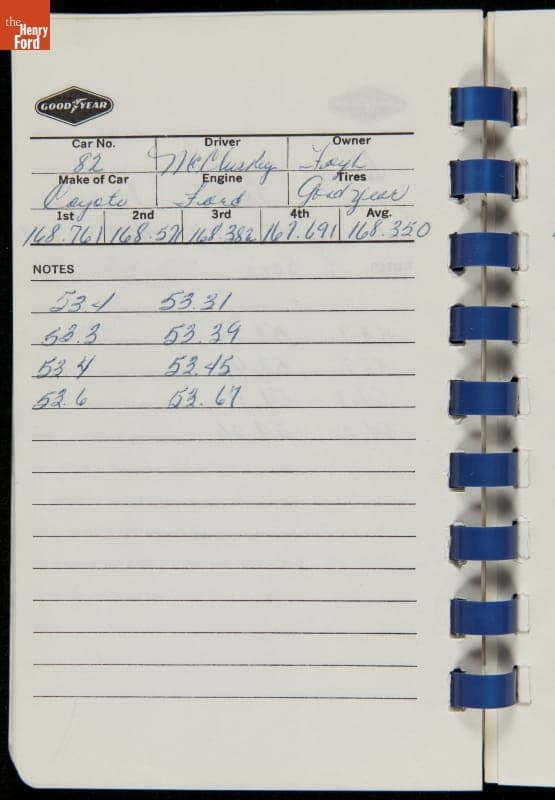 the
Henry
Ford
GOODYEAR
Car No. Driver Owner
82 McCluskey Foyt
Make of Car Engine Tires
Coyote Ford Goodyear
1st 2nd 3rd 4th Avg.
168.761 168.571 168.382 167.691 168.350
NOTES
53.4 53.31
53.3 53.39
53.4 53.45
53.6 53.67